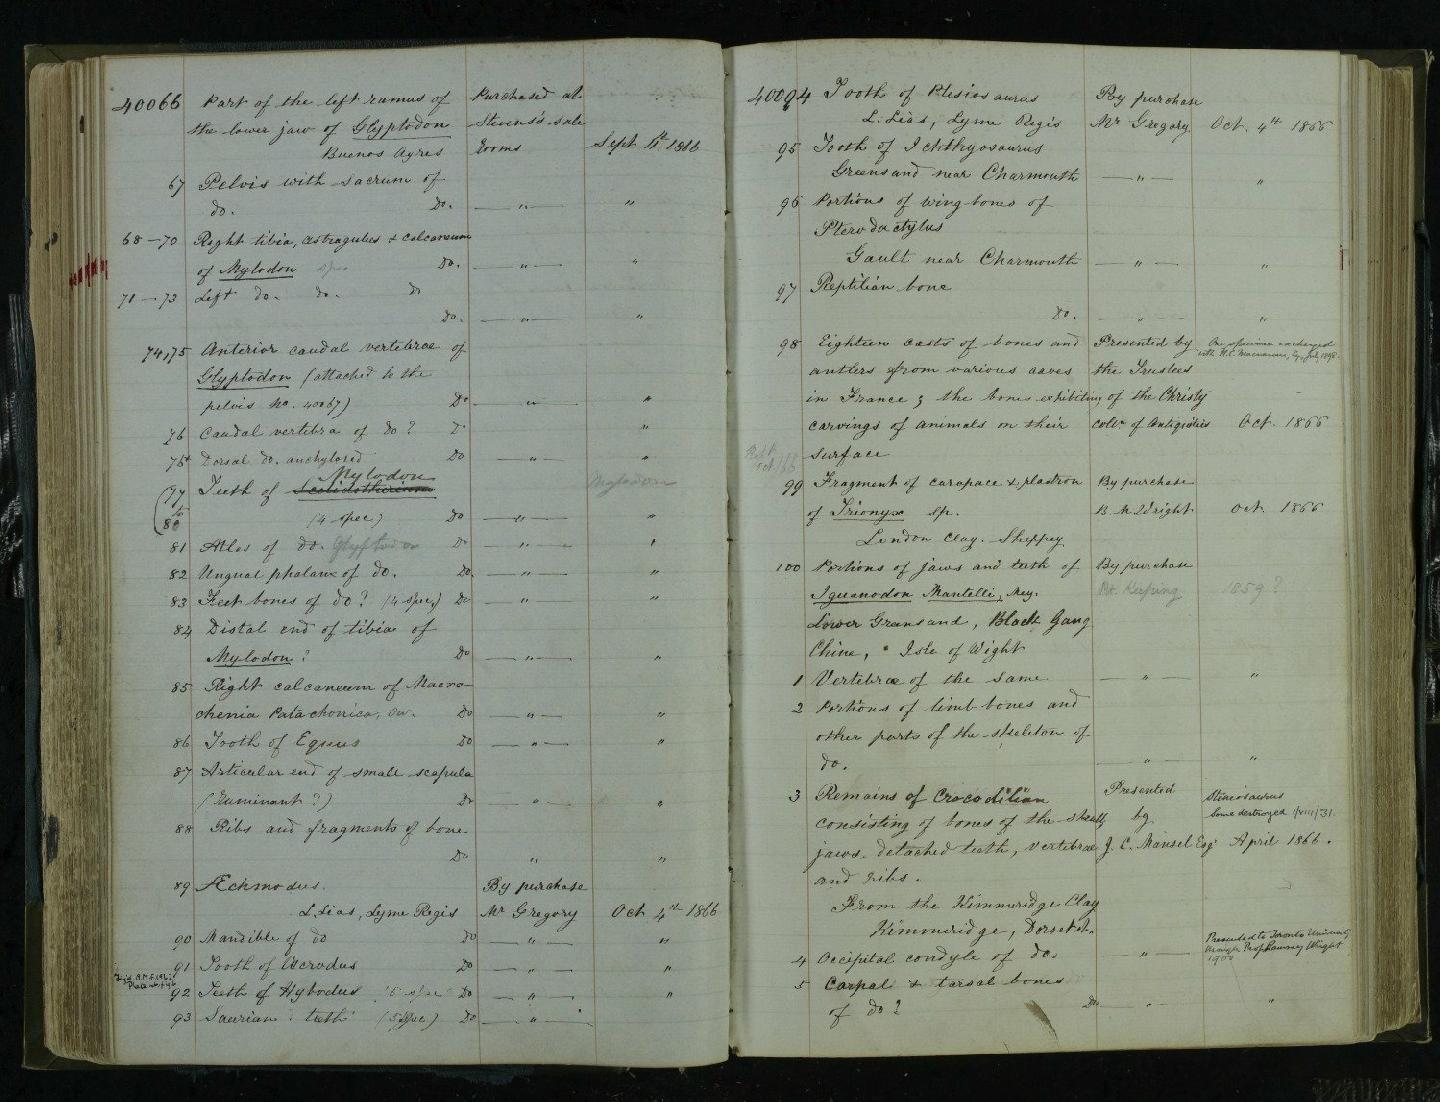 40066 Part of the left ramus of Purchased at
the lower jaw of Glyptodon Stevens's sale
Buenos Ayres rooms Sept 1866
67 Pelvis with sacrum of
do. Do. — " — "
68 – 70 Right tibia, astragulus & calcaneum
of Mylodon Do. — " — "
71 – 73 Left do. do. do
Do. — " — "
74, 75 Anterior caudal vertebrae of
Glyptodon (attached to the
pelvis No. 40067) Do — " — "
76 Caudal vertebra of do? "
76* Dorsal do. anchylosed Do — " — "
Mylodon
77 Teeth of Scelidotherium Mylodon
to
80 (4 spec) Do — " — "
81 Atlas of do. Glyptodon Do — " — "
82 Ungual phalanx of do. Do. — " — "
83 Feet bones of do? (4 spec.) Do — " — "
84 Distal end of tibia of
Mylodon? Do — " — "
85 Right calcaneum of Macro-
chenia Patachonica, Ow. Do — " — "
86 Tooth of Equus Do — " — "
87 Articular end of small scapula
(Ruminant?) Do — " — "
88 Ribs and fragments of bone
Do " "
89 Æchmodus. By purchase
L. Lias, Lyme Regis Mr Gregory Oct 4th 1866
90 Mandible of do Do — " — "
91 Tooth of Acrodus Do — " — "
92 Teeth of Hybodus Do — " — "
93 Saurian teeth (5 spec) Do — " —
40094 Tooth of Plesiosaurus By purchase
L. Lias, Lyme Regis Mr Gregory Oct. 4th 1866
95 Tooth of Ichthyosaurus
Greensand near Charmouth — " — "
96 Portions of wing-bones of
Pterodactylus
Gault near Charmouth — " — "
97 Reptilian bone
Do. — " — "
98 Eighteen casts of bones and Presented by One specimen exchanged
antlers from various caves the Trustees
in France; the bones exhibiting of the Christy
carvings of animals on their Colln of Antiquities Oct. 1866
surface
99 Fragment of carapace & plastron By purchase
of Trionyx sp. B. M. Wright Oct. 1866
London Clay. Sheppey
100 Portions of jaws and teeth of By purchase
Iguanodon Mantelli, Mey. Keeping 1859?
Lower Greensand, Black Gang
Chine, Isle of Wight
1 Vertebrae of the same — " — "
2 Portions of limb-bones and
other parts of the skeleton of
do. — " — "
3 Remains of Crocodilian Presented Steneosaurus
consisting of bones of the skull, by Some destroyed 1/VIII/31.
jaws. detached teeth, vertebrae J. C. Mansel Esqr April 1866.
and ribs.
From the Kimmeridge Clay
Kimmeridge, Dorset
4 Occipital condyle of do. — " — Presented to Toronto University
through Prof Ramsay Wright
1900
5 Carpal & tarsal bones
of do? Do. — " — "